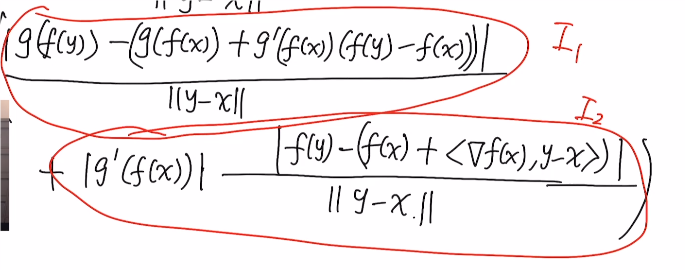 |g(f(y)) - (g(f(x)) + g'(f(x))(f(y) - f(x)))| I₁
||y-x||
I₂
+ |g'(f(x))| |f(y) - (f(x) + <∇f(x), y-x>)| )
||y-x||